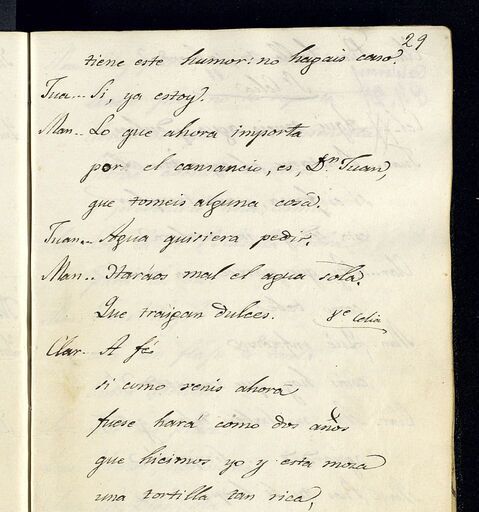 29
tiene este humor: no hagais caso.
Jua... Si, ya estoy.
Man... Lo que ahora importa
por el cansancio, es, Dn. Juan,
que tomeis alguna cosa.
Juan... Agua quisiera pedir.
Man.. Haraos mal el agua sola.
Que traigan dulces. Ve Celia
Clar.. A fé
si como venis ahora
fuese hará como dos años
que hicimos yo y esta moza
una tortilla tan rica,